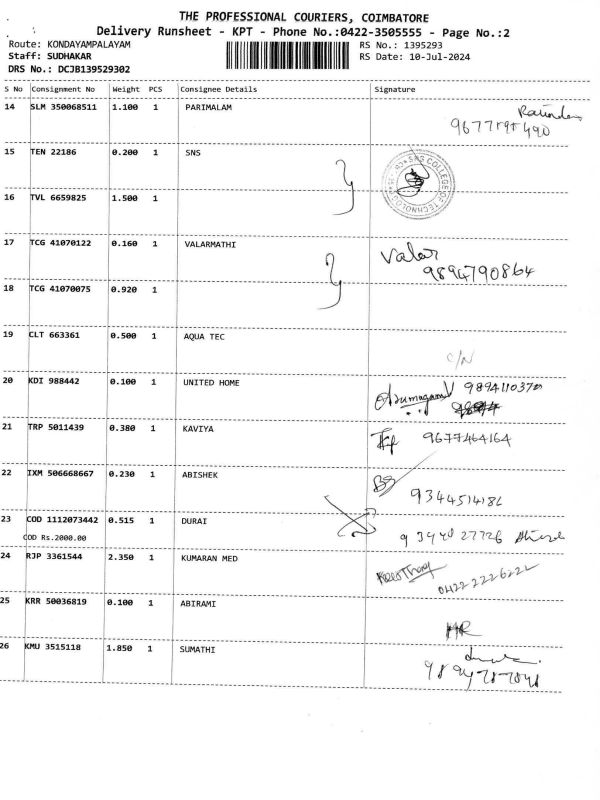 THE PROFESSIONAL COURIERS, COIMBATORE
Delivery Runsheet - KPT - Phone No.:0422-3505555 - Page No.:2
Route: KONDAYAMPALAYAM RS No.: 1395293
Staff: SUDHAKAR RS Date: 10-Jul-2024
DRS No.: DCJB139529302
S No Consignment No Weight PCS Consignee Details Signature
14 SLM 350068511 1.100 1 PARIMALAM
15 TEN 22186 0.200 1 SNS
SNS COLLEGE OF TECHNOLOGY
16 TVL 6659825 1.500 1
17 TCG 41070122 0.160 1 VALARMATHI Valar
9894790864
18 TCG 41070075 0.920 1
19 CLT 663361 0.500 1 AQUA TEC
C/N
20 KDI 988442 0.100 1 UNITED HOME
21 TRP 5011439 0.380 1 KAVIYA 9677464164
22 IXM 506668667 0.230 1 ABISHEK
23 COD 1112073442 0.515 1 DURAI
COD Rs.2000.00
24 RJP 3361544 2.350 1 KUMARAN MED
0422 2226222
25 KRR 50036819 0.100 1 ABIRAMI
26 KMU 3515118 1.850 1 SUMATHI